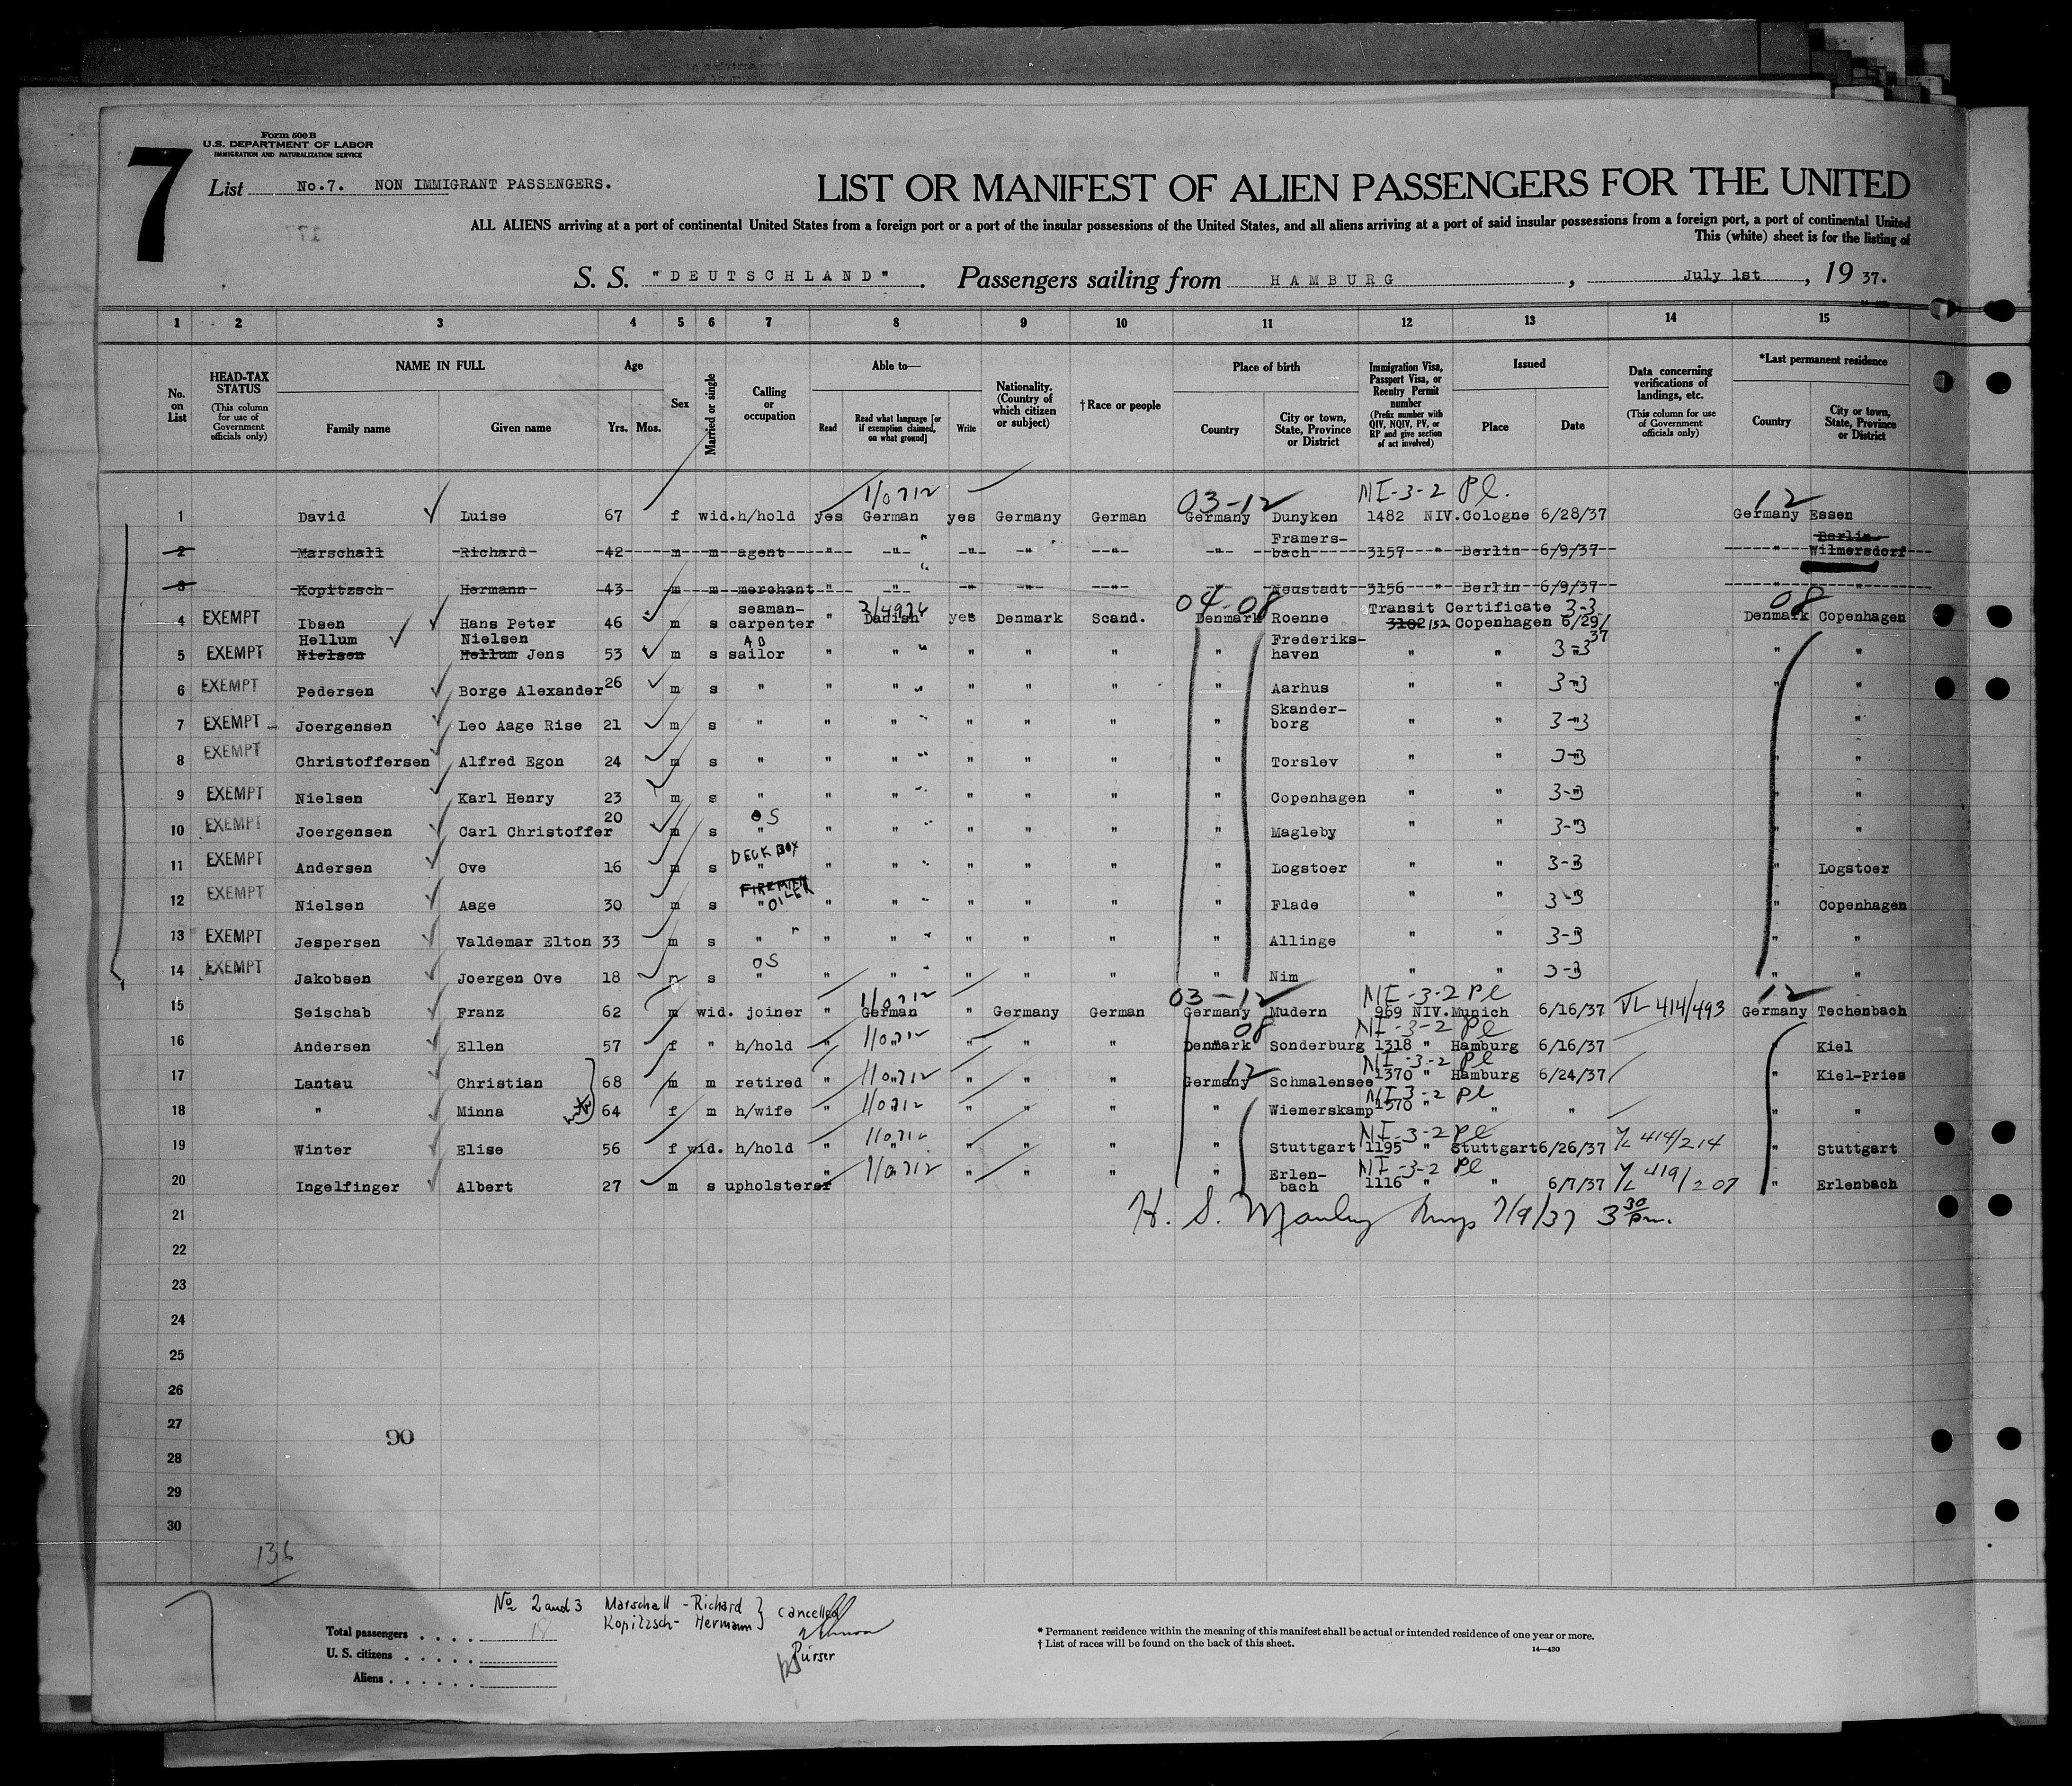 7
Form 500 B
U.S. DEPARTMENT OF LABOR
IMMIGRATION AND NATURALIZATION SERVICE
List No.7. NON IMMIGRANT PASSENGERS.
LIST OR MANIFEST OF ALIEN PASSENGERS FOR THE UNITED
ALL ALIENS arriving at a port of continental United States from a foreign port or a port of the insular possessions of the United States, and all aliens arriving at a port of said insular possessions from a foreign port, a port of continental United
This (white) sheet is for the listing of
177
S. S. "DEUTSCHLAND". Passengers sailing from HAMBURG, July 1st, 19 37.
1 2 3 4 5 6 7 8 9 10 11 12 13 14 15
No. on List
HEAD-TAX STATUS (This column for use of Government officials only)
NAME IN FULL Family name Given name
Age Yrs. Mos.
Sex
Married or single
Calling or occupation
Able to— Read Read what language [or if exemption claimed, on what ground] Write
Nationality. (Country of which citizen or subject)
†Race or people
Place of birth Country City or town, State, Province or District
Immigration Visa, Passport Visa, or Reentry Permit number (Prefix number with QIV, NQIV, PV, or RP and give section of act involved)
Issued Place Date
Data concerning verifications of landings, etc. (This column for use of Government officials only)
*Last permanent residence Country City or town, State, Province or District
03-12 NI-3-2 Pl. 12
1 David Luise 67 f wid. h/hold yes German yes Germany German Germany Dunyken 1482 NIV. Cologne 6/28/37 Germany Essen
2 Marschall Richard 42 m m agent " " " " " " Framers-bach 3157 " Berlin 6/9/37 " Berlin Wilmersdorf
3 Kopitzsch Hermann 43 m m merchant " " " " " " Neustadt 3156 " Berlin 6/9/37 " "
04-08 3-3 08
4 EXEMPT Ibsen Hans Peter 46 m s seaman-carpenter " Danish yes Denmark Scand. Denmark Roenne Transit Certificate 3102/52 Copenhagen 6/29/37 Denmark Copenhagen
5 EXEMPT Hellum Nielsen Nielsen Hellum Jens 53 m s AB sailor " " " " " " Frederiks-haven " " 3-3 " "
6 EXEMPT Pedersen Borge Alexander 26 m s " " " " " " " Aarhus " " 3-3 " "
7 EXEMPT Joergensen Leo Aage Rise 21 m s " " " " " " " Skander-borg " " 3-3 " "
8 EXEMPT Christoffersen Alfred Egon 24 m s " " " " " " " Torslev " " 3-3 " "
9 EXEMPT Nielsen Karl Henry 23 m s " " " " " " " Copenhagen " " 3-3 " "
10 EXEMPT Joergensen Carl Christoffer 20 m s OS " " " " " " " Magleby " " 3-3 " "
11 EXEMPT Andersen Ove 16 m s DECK BOY " " " " " " " Logstoer " " 3-3 " Logstoer
12 EXEMPT Nielsen Aage 30 m s FIREMEN OILER " " " " " " " Flade " " 3-3 " Copenhagen
13 EXEMPT Jespersen Valdemar Elton 33 m s " " " " " " " Allinge " " 3-3 " "
14 EXEMPT Jakobsen Joergen Ove 18 m s OS " " " " " " " Nim " " 3-3 " "
03-12 NI-3-2 Pl 12
15 Seischab Franz 62 m wid. joiner " German " Germany German Germany Mudern 969 NIV. Munich 6/16/37 414/493 Germany Techenbach
08 NI-3-2 Pl
16 Andersen Ellen 57 f " h/hold " " " " " Denmark Sonderburg 1318 " Hamburg 6/16/37 " Kiel
12 NI-3-2 Pl
17 Lantau Christian 68 m m retired " " " " " Germany Schmalensee 1370 " Hamburg 6/24/37 " Kiel-Pries
NI-3-2 Pl
18 " Minna 64 f m h/wife " " " " " " Wiemerskamp 1370 " " " " "
NI-3-2 Pl
19 Winter Elise 56 f wid. h/hold " " " " " " Stuttgart 1195 " Stuttgart 6/26/37 414/214 " Stuttgart
NI-3-2 Pl
20 Ingelfinger Albert 27 m s upholsterer " " " " " " Erlen-bach 1116 " " 6/7/37 419/207 " Erlenbach
21 7/9/37 3 30 pm.
22
23
24
25
26
27
90
28
29
30
136
No 2 and 3 Marschall - Richard } cancelled
Kopitzsch - Hermann
Purser
Total passengers 18
U. S. citizens
Aliens
* Permanent residence within the meaning of this manifest shall be actual or intended residence of one year or more.
† List of races will be found on the back of this sheet.
14—430